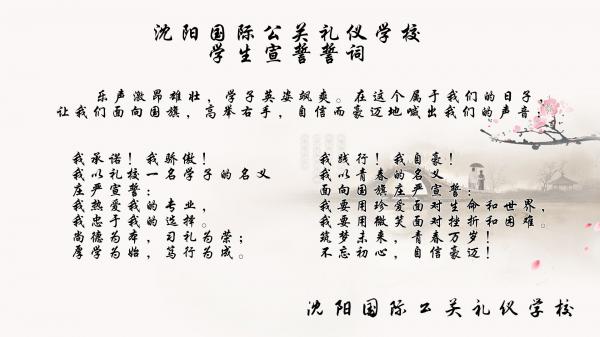 沈阳国际公关礼仪学校
学生宣誓誓词
乐声激昂雄壮，学子英姿飒爽。在这个属于我们的日子，
让我们面向国旗，高举右手，自信而豪迈地喊出我们的声音：
我承诺！我骄傲！
我以礼校一名学子的名义
庄严宣誓：
我热爱我的专业，
我忠于我的选择。
尚德为本，习礼为荣；
厚学为始，笃行为成。
我践行！我自豪！
我以青春的名义
面向国旗庄严宣誓：
我要用珍爱面对生命和世界，
我要用微笑面对挫折和困难。
筑梦未来，青春万岁！
不忘初心，自信豪迈！
沈阳国际公关礼仪学校